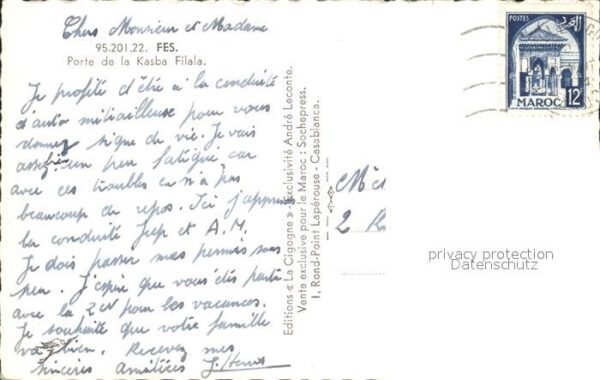 Chers Monsieur et Madame
95.201.22. FES.
Porte de la Kasba Filala.
Je profite d'être à la conduite
d'auto mitrailleuse pour vous
donner signe de vie. Je vais
assez bien un peu fatigué car
avec ces troubles on n'a pas
beaucoup de repos. Ici j'apprends
la conduite Jeep et A.M.
Je dois passer mes permis sous
peu. J'espère que vous êtes parti
avec la 2cv pour les vacances.
Je souhaite que votre famille
va bien. Recevez mes
sincères amitiées
Editions « La Cigogne » Exclusivité André Leconte.
Vente exclusive pour le Maroc : Sochepress.
1, Rond-Point Lapérouse - Casablanca.
POSTES
MAROC 12F
2
privacy protection
Datenschutz